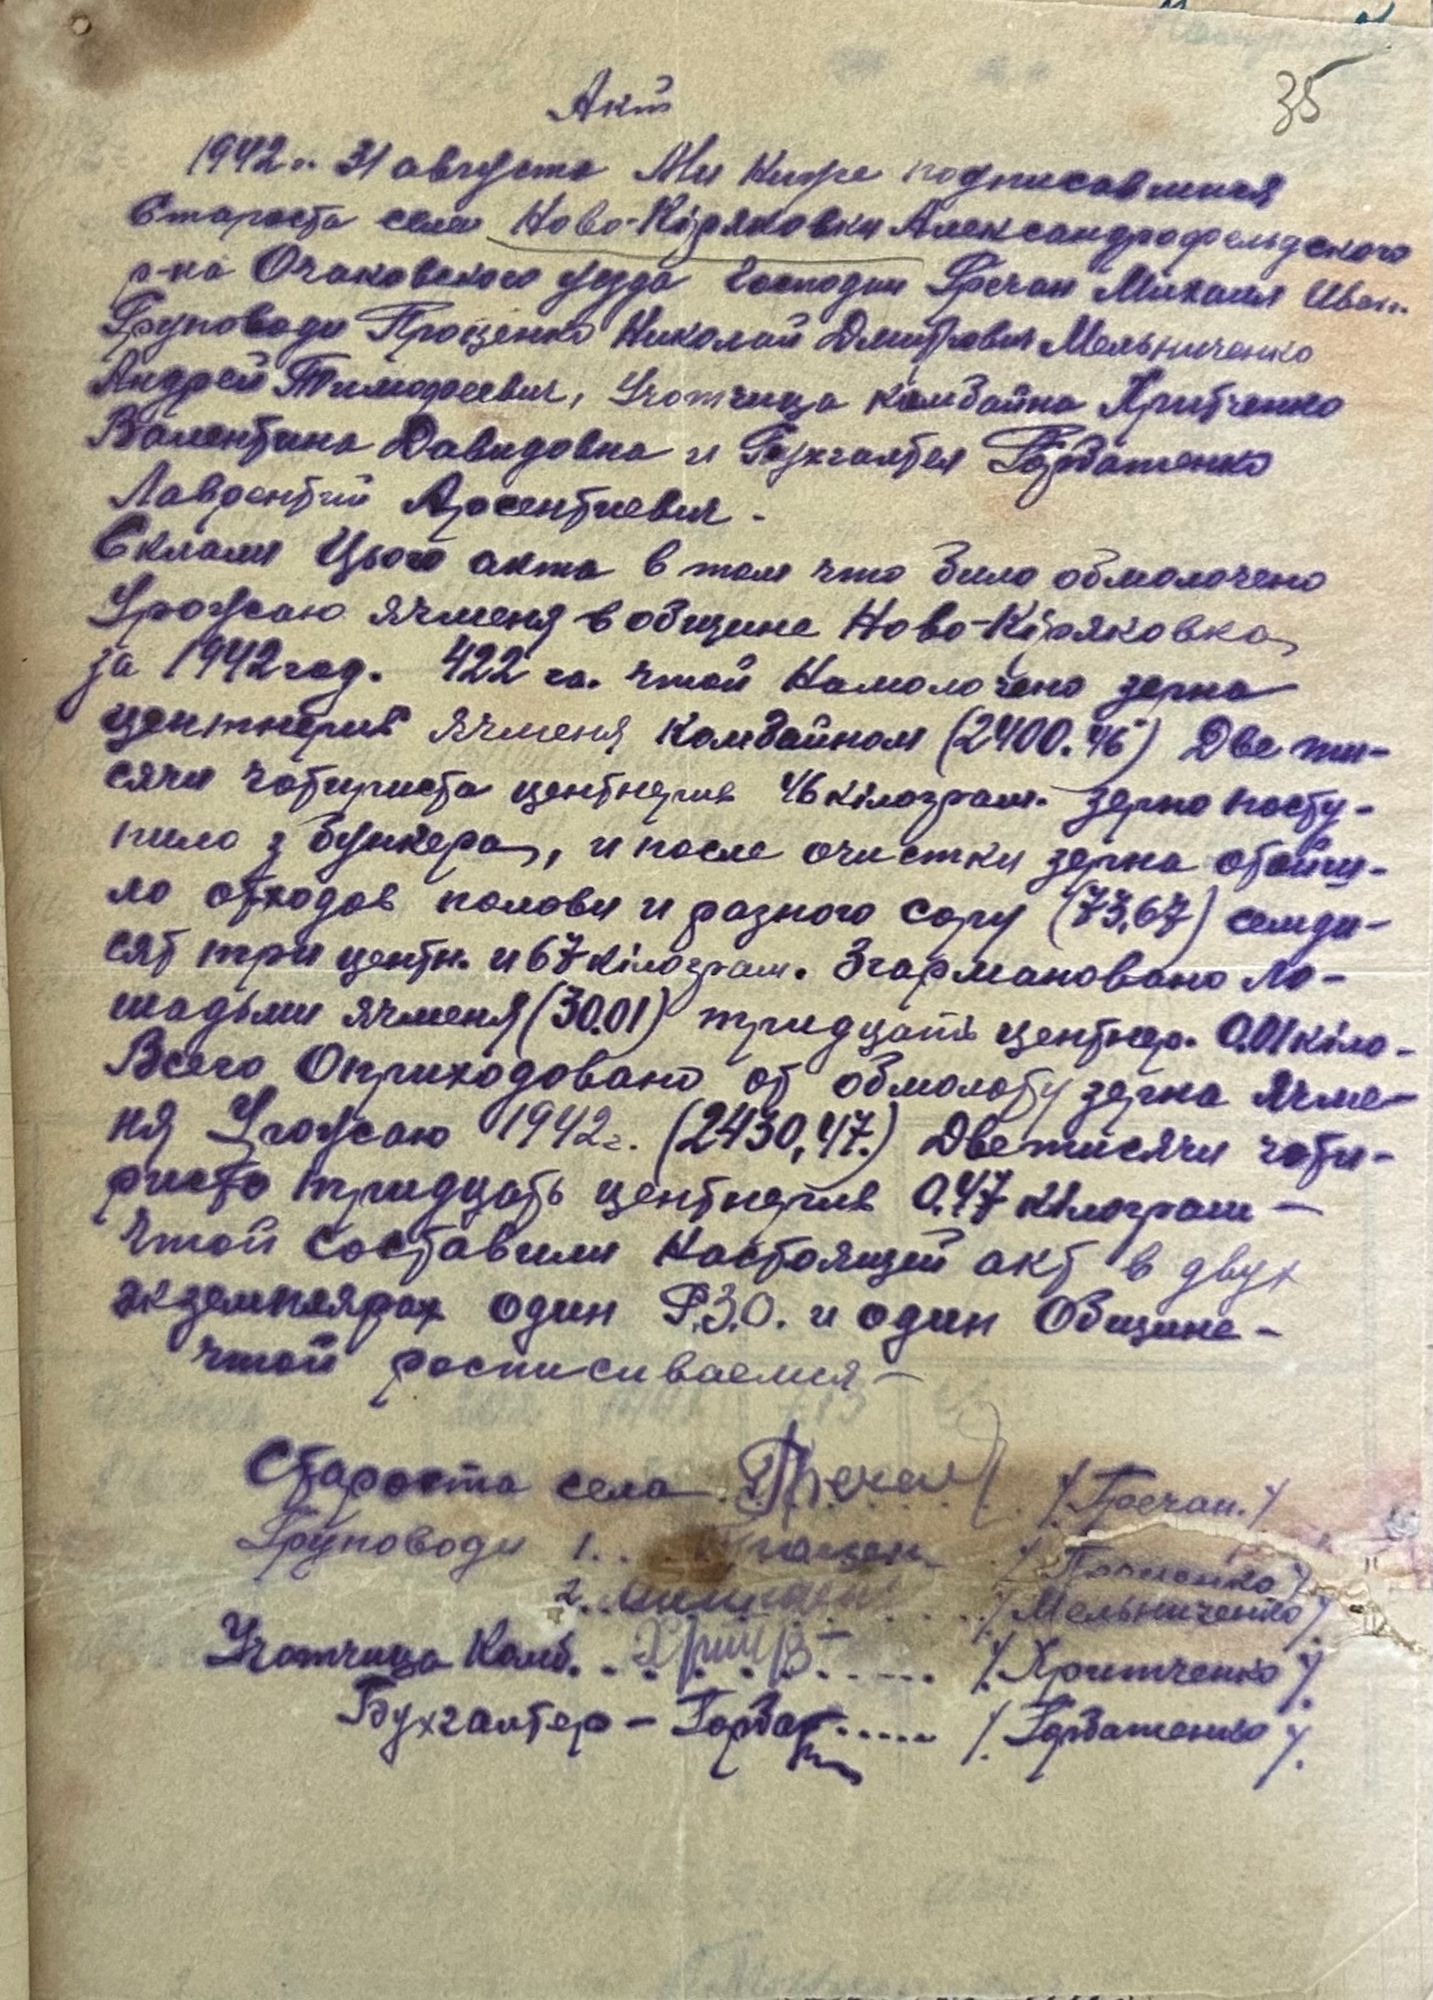 35
Акт
1942 г. 31 августа Ми ниже подписавшися
Староста села Ново-Кіряковки Александрофельдского
р-на Очаковского уезда Господин Гречан Михаил Иван.
Груповоди Проценко Николай Дмитрович Мельниченко
Андрей Тимофеевич, Учотчица комбайна Хритченко
Валентина Давидовна и Бухгалтер Горбатенко
Лаврентий Арсентиевич.
Склали Цього акта в том что било обмолочено
Урожаю ячменя в общине Ново-Кіряковка
за 1942 год. 422 га. чтой Намолочено зерна
центнерив ячменя комбайном (2400.46) Две ти-
сячи чотириста центнерив 46 кілограм. зерно посту-
пило з бункера, и после очистки зерна отойш-
ло отходов полови и разного сору (73,67) семде-
сят три центн. и 67 кілограм. Згармановано ло-
шадьми ячменя (30.01) тридцать центнер. 0.01 кіло-
Всего Оприходовано от обмолоту зерна ячме-
ня Урожаю 1942 г. (2430,47.) Две тисячи чоти-
риста тридцать центнерив 0.47 кілограм —
Чтой составили настоящий акт в двух
экземплярах один Р.З.О. и один Общине —
чтой росписиваемся —
Староста села Гречан /Гречан./
Груповоди 1. . . Процен. . /Проценко/
2. . . . . . /Мельниченко/
Учотчица Комб. . . Хритч . . . . /Хритченко/.
Бухгалтер — Горбат . . . . . /Горбатенко/.